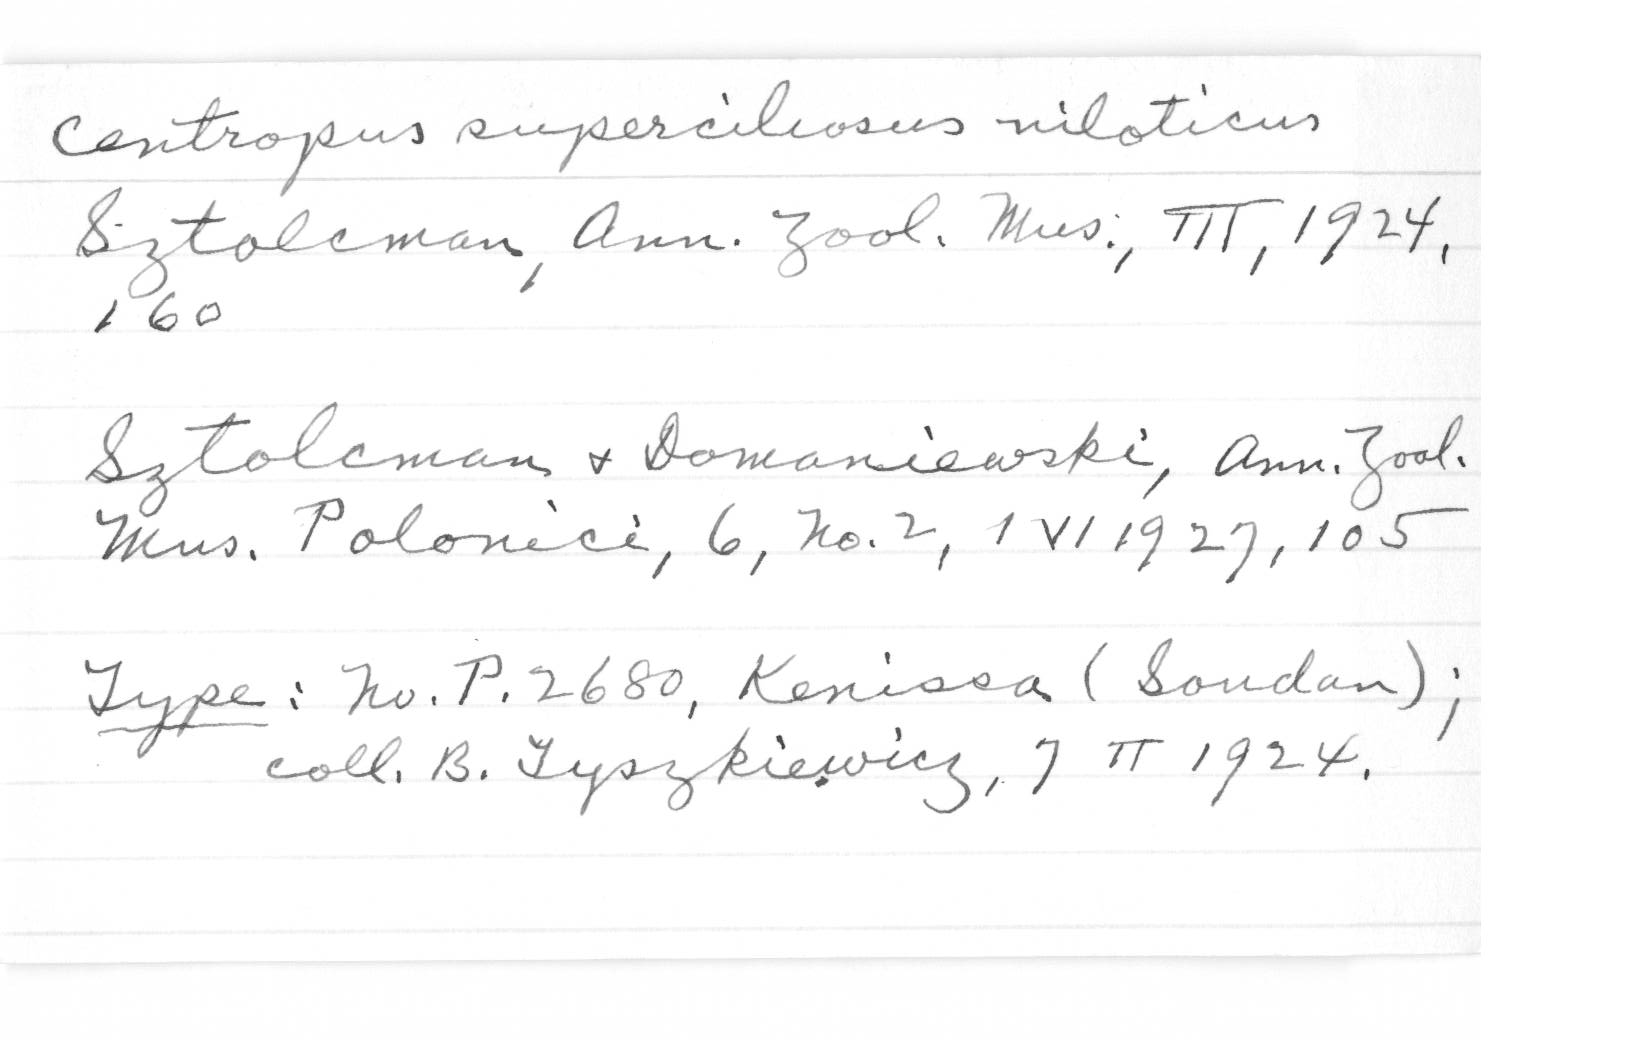 Centropus superciliosus niloticus
Sztolcman, Ann. Zool. Mus., III, 1924,
160
Sztolcman & Domaniewski, Ann. Zool.
Mus. Polonici, 6, No. 2, 1 VI 1927, 105
Type: No. P. 2680, Kenissa (Soudan);
coll. B. Tyszkiewicz, 7 II 1924.